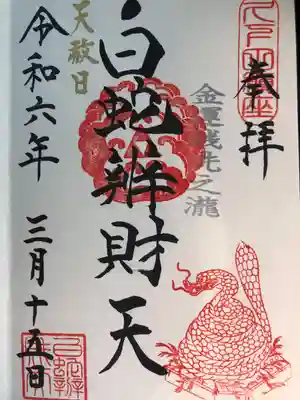 奉拝
金運銭洗之瀧
白蛇辨財天
天赦日
令和六年 三月十五日